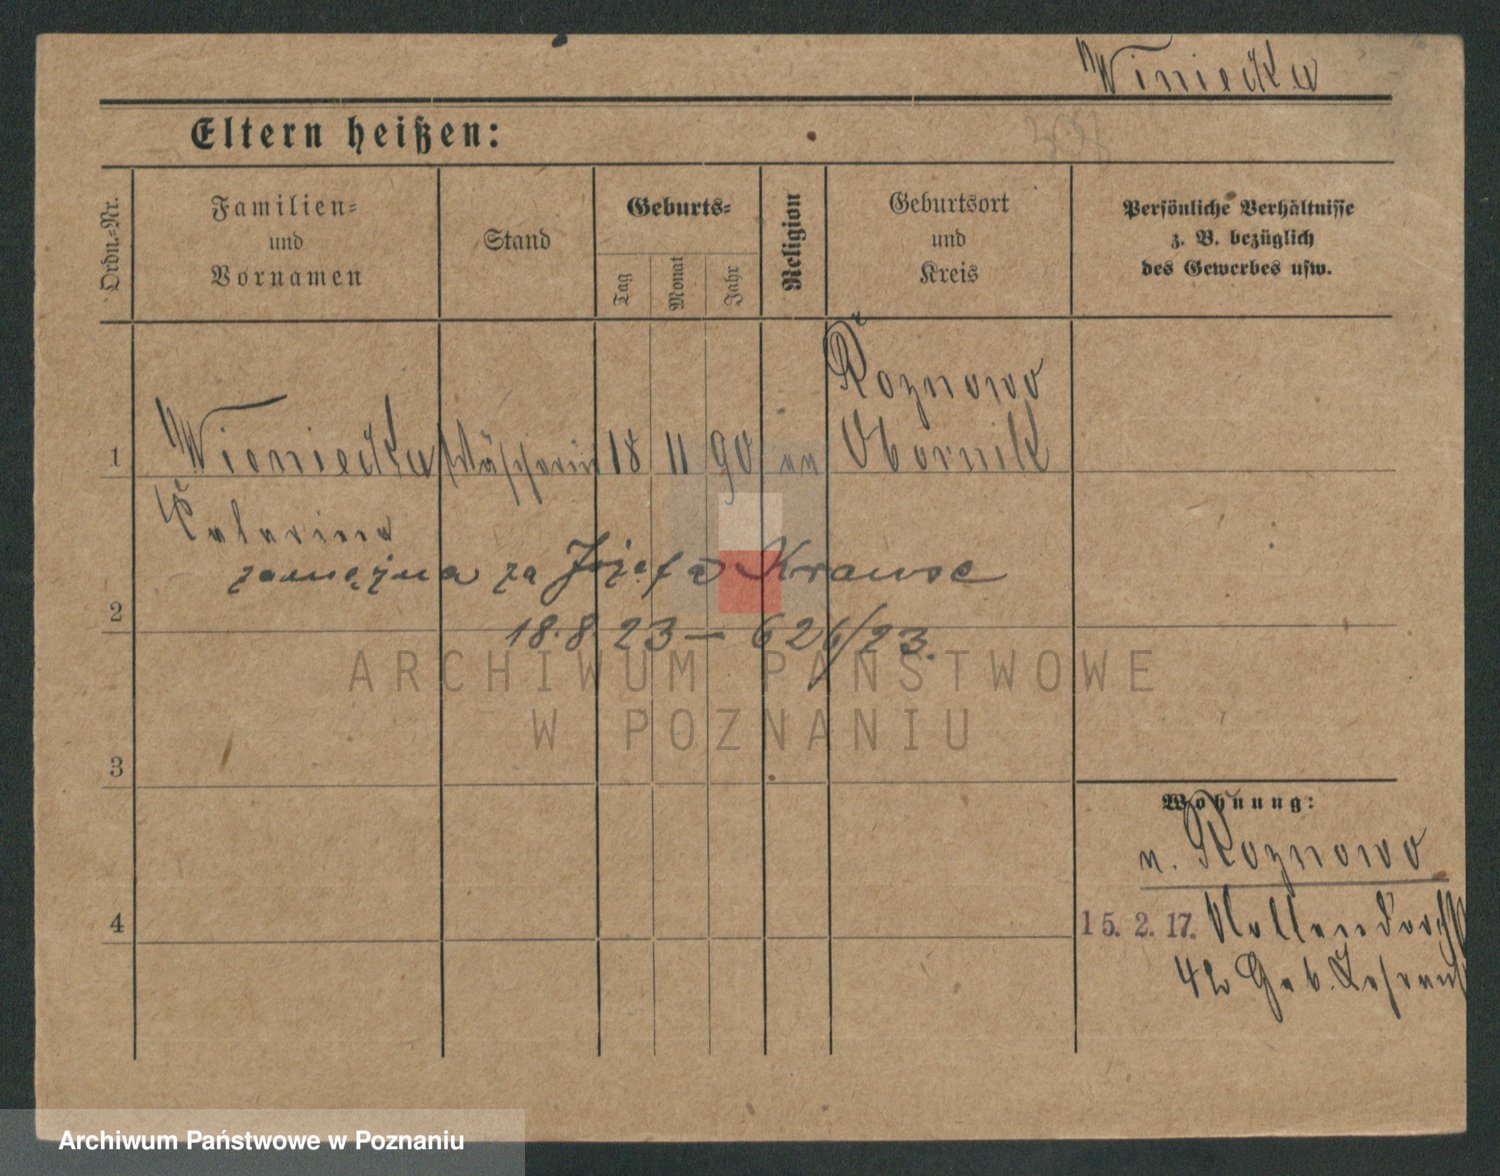 Winiecka
Eltern heißen:
Ordn.-Nr.
Familien-
und
Vornamen
Stand
Geburts-
Tag
Monat
Jahr
Religion
Geburtsort
und
Kreis
Persönliche Verhältnisse
z. B. bezüglich
des Gewerbes usw.
Roznowo
1 Wieniecka 18 11 90 Obornik
Catarina
zamężna za Józefa Krause
2
18.8.23 – 626/23.
ARCHIWUM PAŃSTWOWE
W POZNANIU
3
Wohnung:
v. Roznowo
4
15. 2. 17. Nollendorfst
42 Geb.
Archiwum Państwowe w Poznaniu